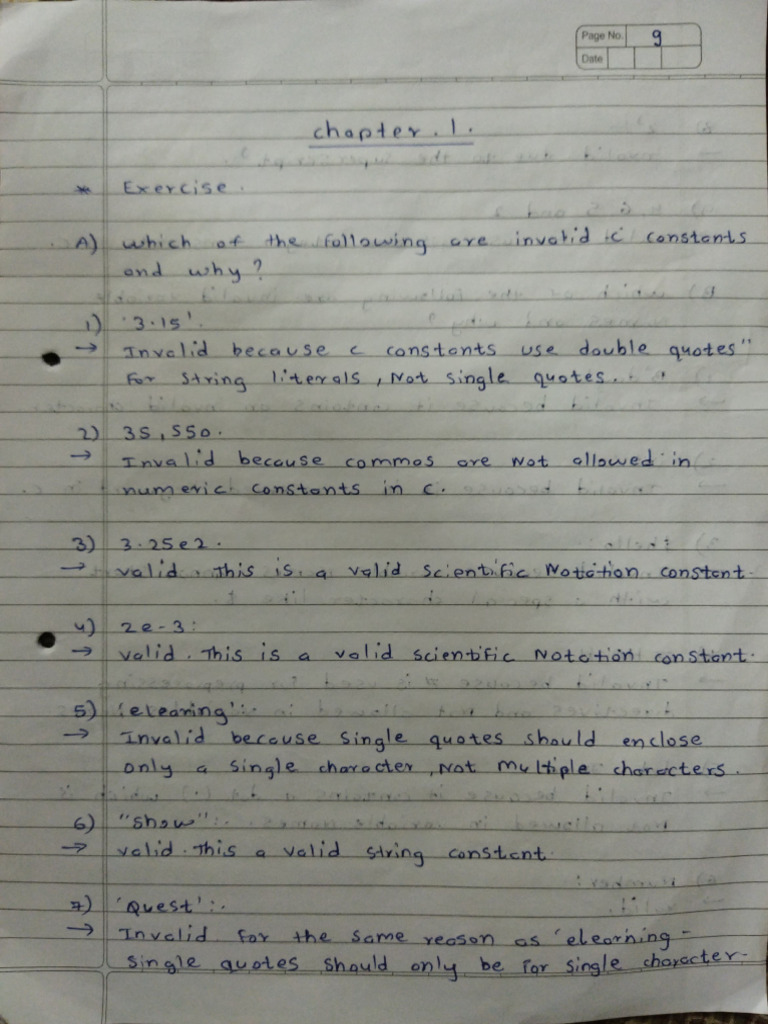 Page No. 9
Date
chapter . 1 .
* Exercise .
A) which of the following are invalid c constants
and why ?
1) '3.15'.
→ Invalid because c constants use double quotes"
For String literals , Not single quotes.
2) 35,550.
→ Invalid because commas are Not allowed in
numeric constants in c.
3) 3.25e2.
→ valid . This is a valid scientific Notation constant.
4) 2e-3:
→ valid . This is a valid scientific Notation constant.
5) 'elearing':
→ Invalid because Single quotes should enclose
only a single character , Not multiple characters .
6) "show":
→ valid . This a valid string constant
7) 'Quest':.
→ Invalid for the same reason as 'elearning -
single quotes should only be for single character-